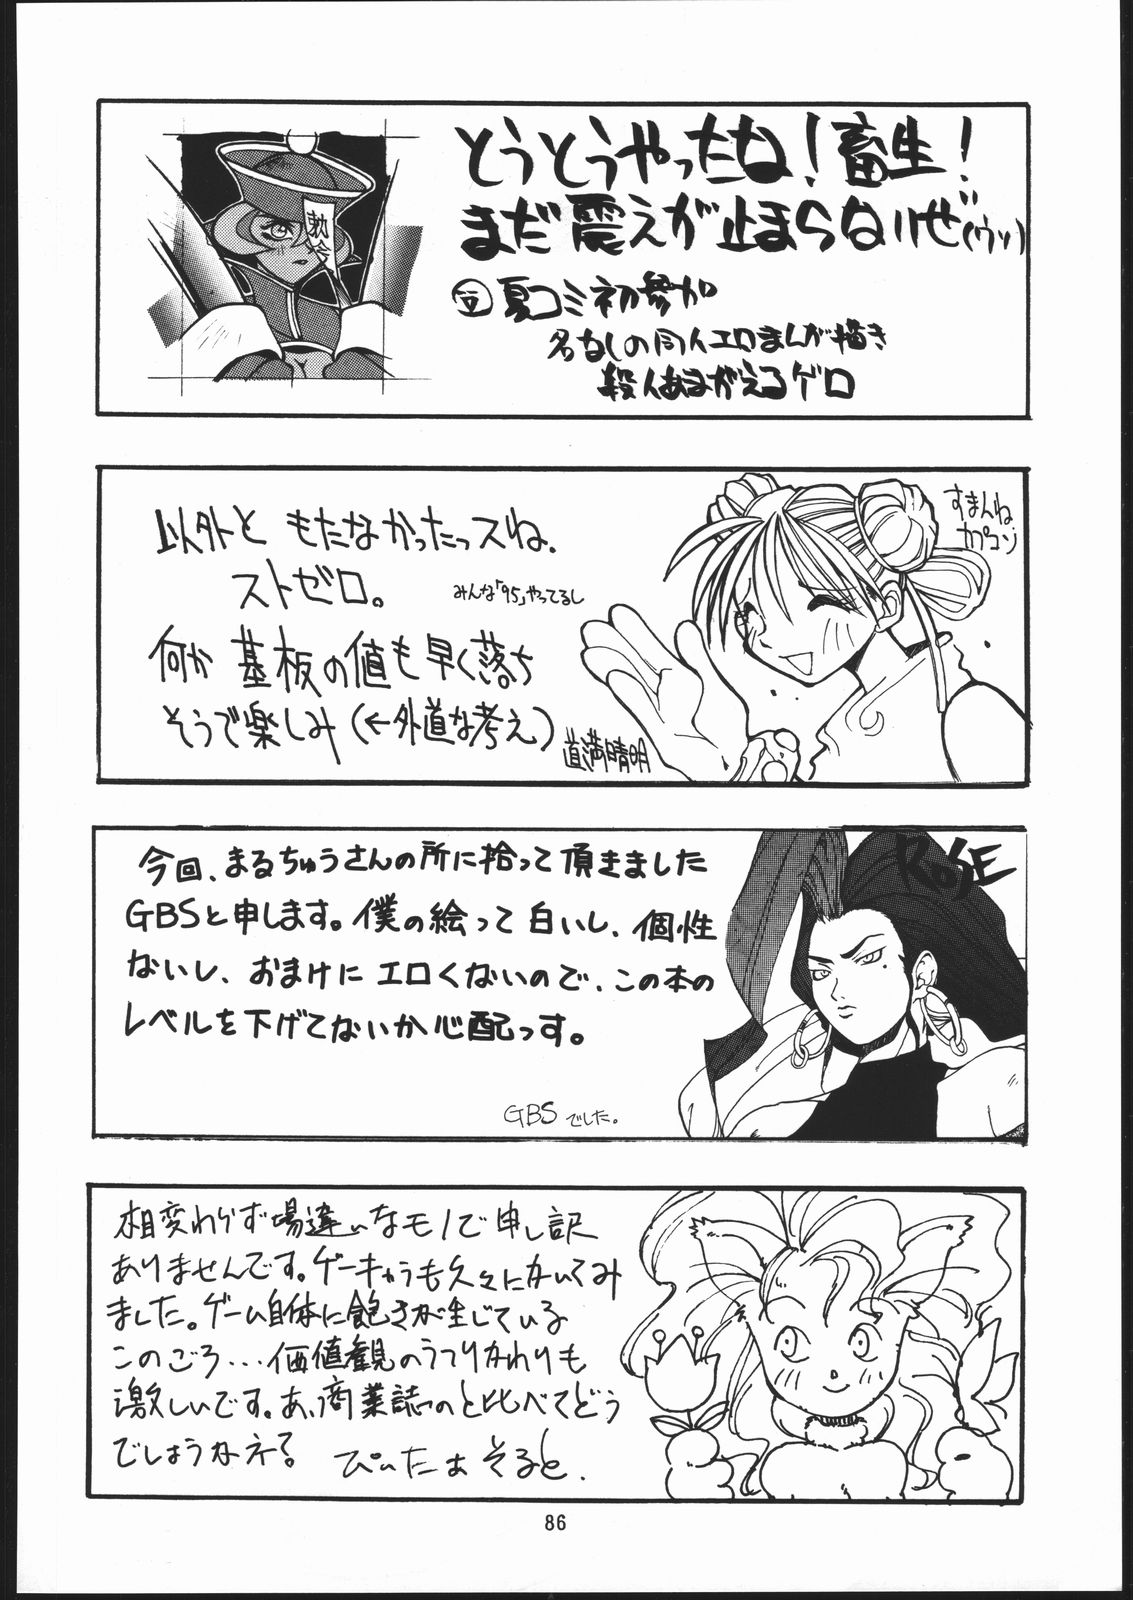 勅令
とうとうやったな!畜生!
まだ震えが止まらないぜ(ウッ)
夏コミ初参加
名なしの同人エロまんが描き
殺人あまがえるゲロ
すまんね
カプコン
以外ともたなかったっスね.
ストゼロ。
みんな「95」やってるし
何か基板の値も早く落ち
そうで楽しみ(←外道な考え)
道満晴明
ROSE
今回、まるちゅうさんの所に拾って頂きました
GBSと申します。僕の絵って白いし、個性
ないし、おまけにエロくないので、この本の
レベルを下げてないか心配っす。
GBSでした。
相変わらず場違いなモノで申し訳
ありませんです。ゲーキャラも久々にかいてみ
ました。ゲーム自体に飽きが生じている
このごろ...価値観のうつりかわりも
激しいです。あ、商業誌のと比べてどう
でしょうかネ?
ぴぃたぁ そると.
86